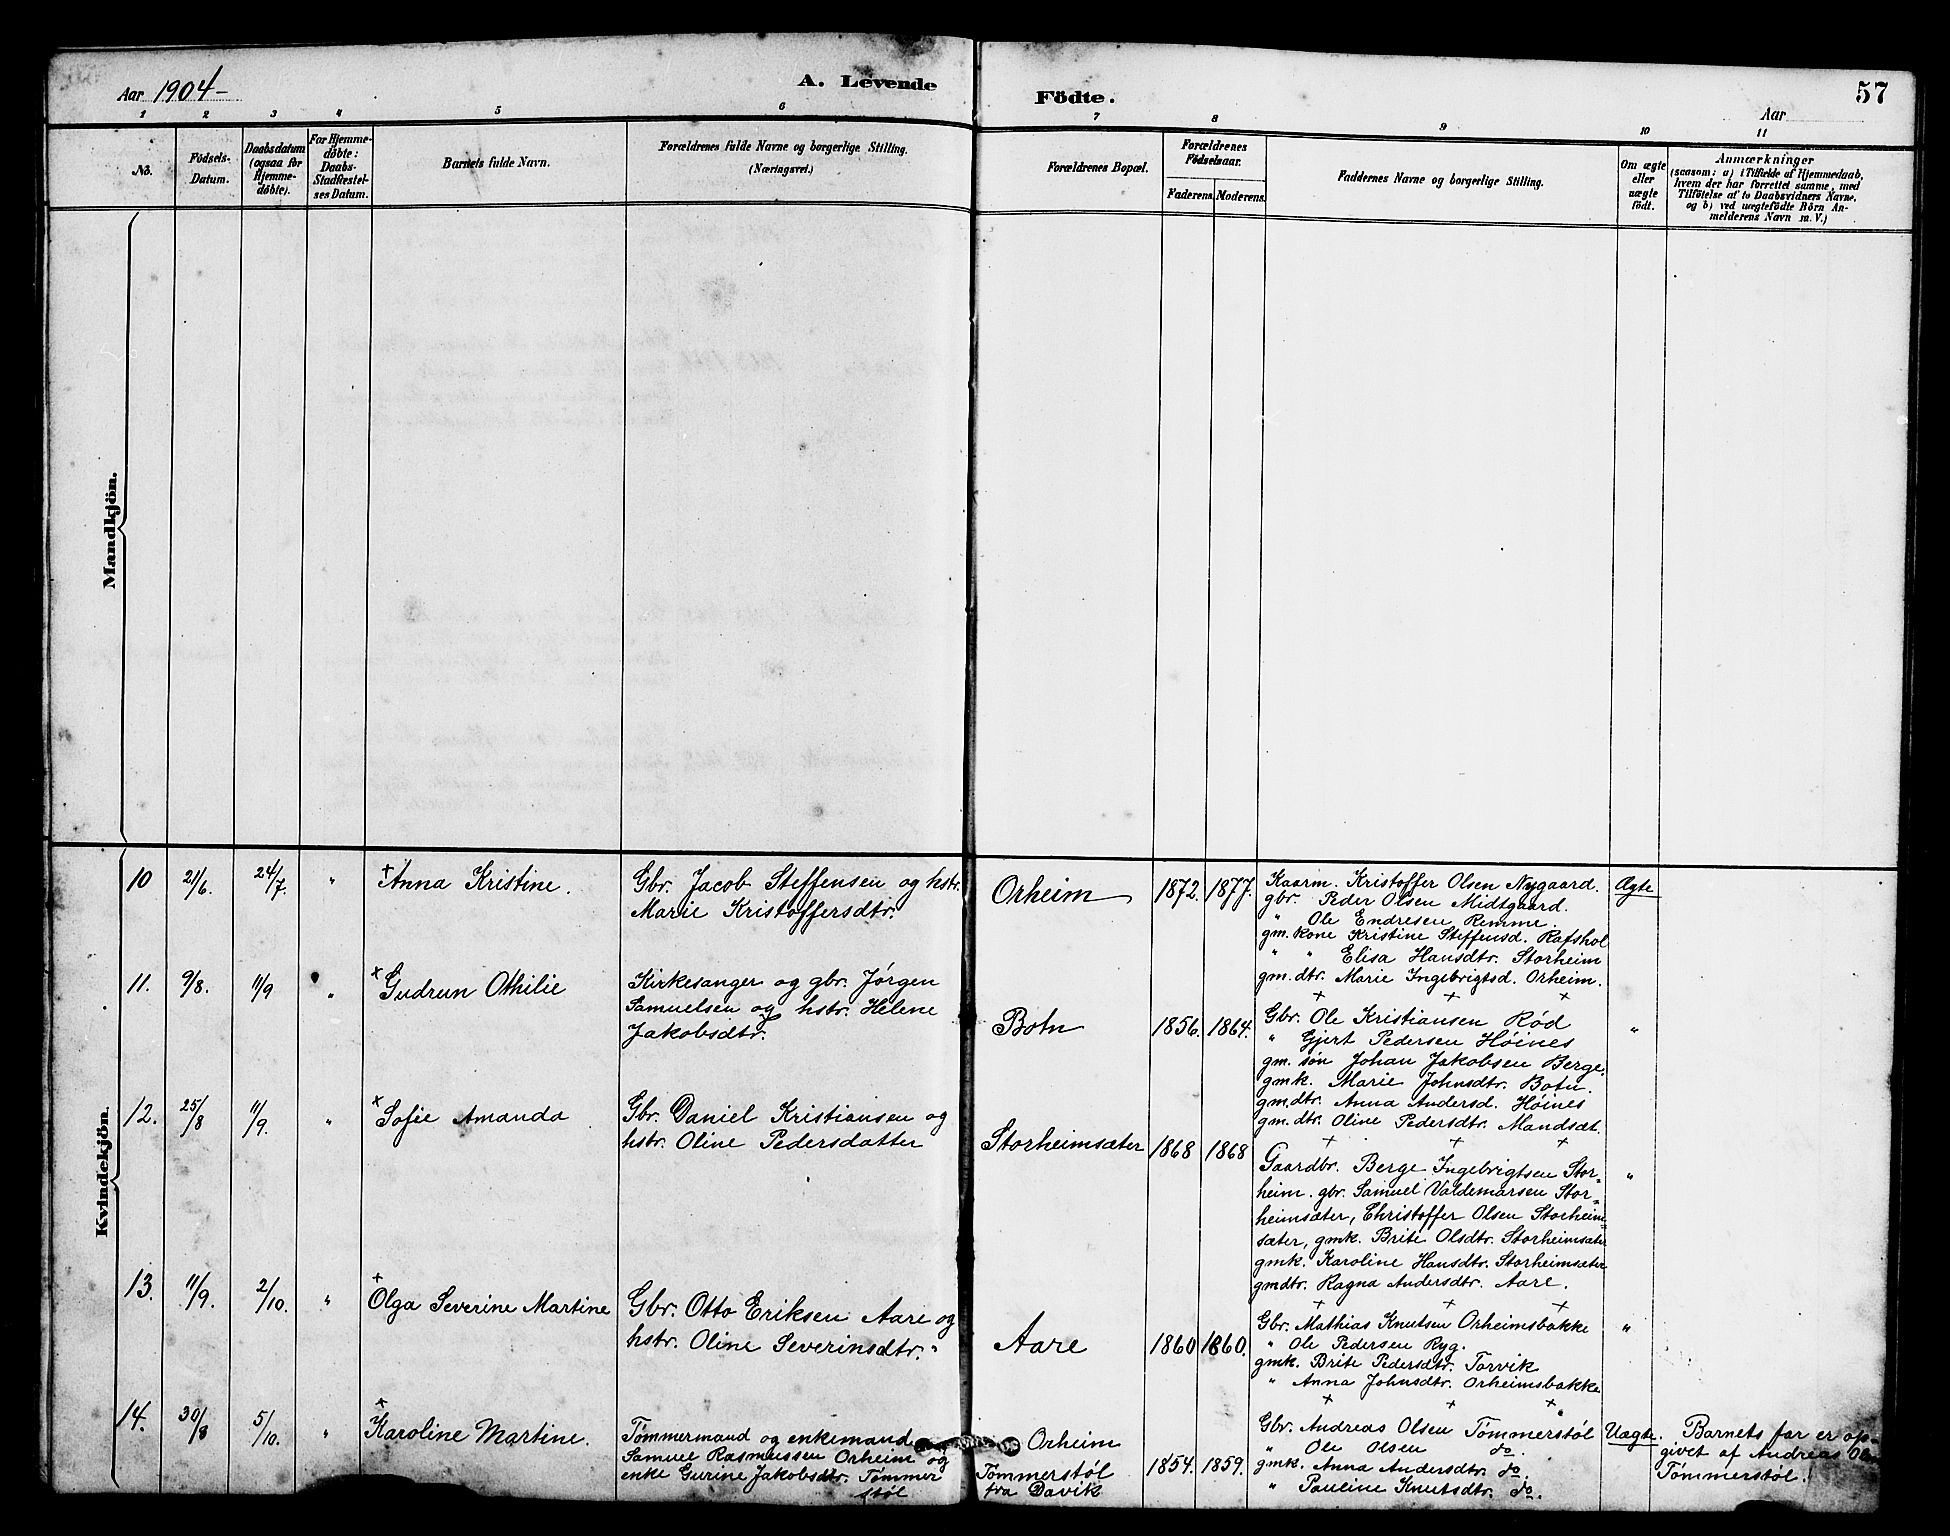 Aar 1904-
A. Levende
Födte.
Aar
57
1 2 3 4 5 6 7 8 9 10 11
No.
Födsels-
Datum.
Daabsdatum
(ogsaa for
Hjemme-
döbte).
For Hjemme-
döbte:
Daabs-
Stadfæstel-
ses Datum.
Barnets fulde Navn.
Forældrenes fulde Navne og borgerlige Stilling.
(Næringsvei.)
Forældrenes Bopæl.
Forældrenes
Födselsaar.
Faderens. Moderens.
Faddernes Navne og borgerlige Stilling.
Om ægte
eller
uægte
födt.
Anmærkninger
(saasom: a) i Tilfælde af Hjemmedaab,
hvem der har forrettet samme, med
Tilföielse af to Daabsvidners Navne.
og b) ved uægtefödte Börn An-
melderens Navn m. V.)
Mandkjön.
Kvindekjön.
10 21/6. 24/7. " + Anna Kristine.
Gbr. Jacob Steffensen og hstr.
Marie Kristoffersdtr.
Orheim 1872. 1877.
Kaarm. Kristoffer Olsen Nygaard.
gbr. Peder Olsen Midtgaard.
" Ole Endresen Remme.
gm. kone Kristine Steffensd. Rafshol
" " Elisa Hansdtr. Storheim
gm. dtr. Marie Ingebrigtsd. Orheim.
+ + +
Ægte
11. 9/8. 11/9 " + Gudrun Othilie
Kirkesanger og gbr. Jørgen
Samuelsen og hstr. Helene
Jakobsdtr.
Botn 1856. 1864.
Gbr. Ole Kristiansen Rød
" Gjert Pedersen Høines
gm. søn Johan Jakobsen Berge.
gmk. Marie Johnsdtr. Botn.
gm. dtr. Anna Andersd. Høines
gm. dtr. Oline Pedersdtr. Mandsæt.
+ + +
"
12. 25/8 11/9. " + Sofie Amanda
Gbr. Daniel Kristiansen og
hstr. Oline Pedersdatter
Storheimsæter 1868 1868
Gaardbr. Berge Ingebrigtsen Stor-
heim. gbr. Samuel Valdemarsen Stor-
heimsæter, Christoffer Olsen Storheim-
sæter, gmk. Brite Olsdtr. Storheimsæter
gmk. Karoline Hansdtr. Storheimsæter
gmdtr. Ragna Andersdtr. Aare.
+ + +
"
13. 11/9. 2/10. " + Olga Severine Martine
Gbr. Otto Eriksen Aare og
hstr. Oline Severinsdtr. "
Aare 1860 1860.
Gbr. Mathias Knutsen Orheimsbakke
" Ole Pedersen Ryg.
gmk. Brite Pedersdtr. Torvik
" Anna Johnsdtr. Orheimsbakke
+ + +
"
14. 30/8 5/10. " + Karoline Martine.
Tømmermand og enkemand
Samuel Rasmussen Orheim og
enke Gurine Jakobsdtr. Tømmer
støl
Orheim
Tømmerstøl
fra Davik
1854. 1859.
Gbr. Andreas Olsen Tømmerstøl
" Ole Olsen do.
gmk. Anna Andersdtr. do.
" Pauline Knutsdtr. do.
Uægte.
Barnets far er op-
givet af Andreas
Tømmerstøl.